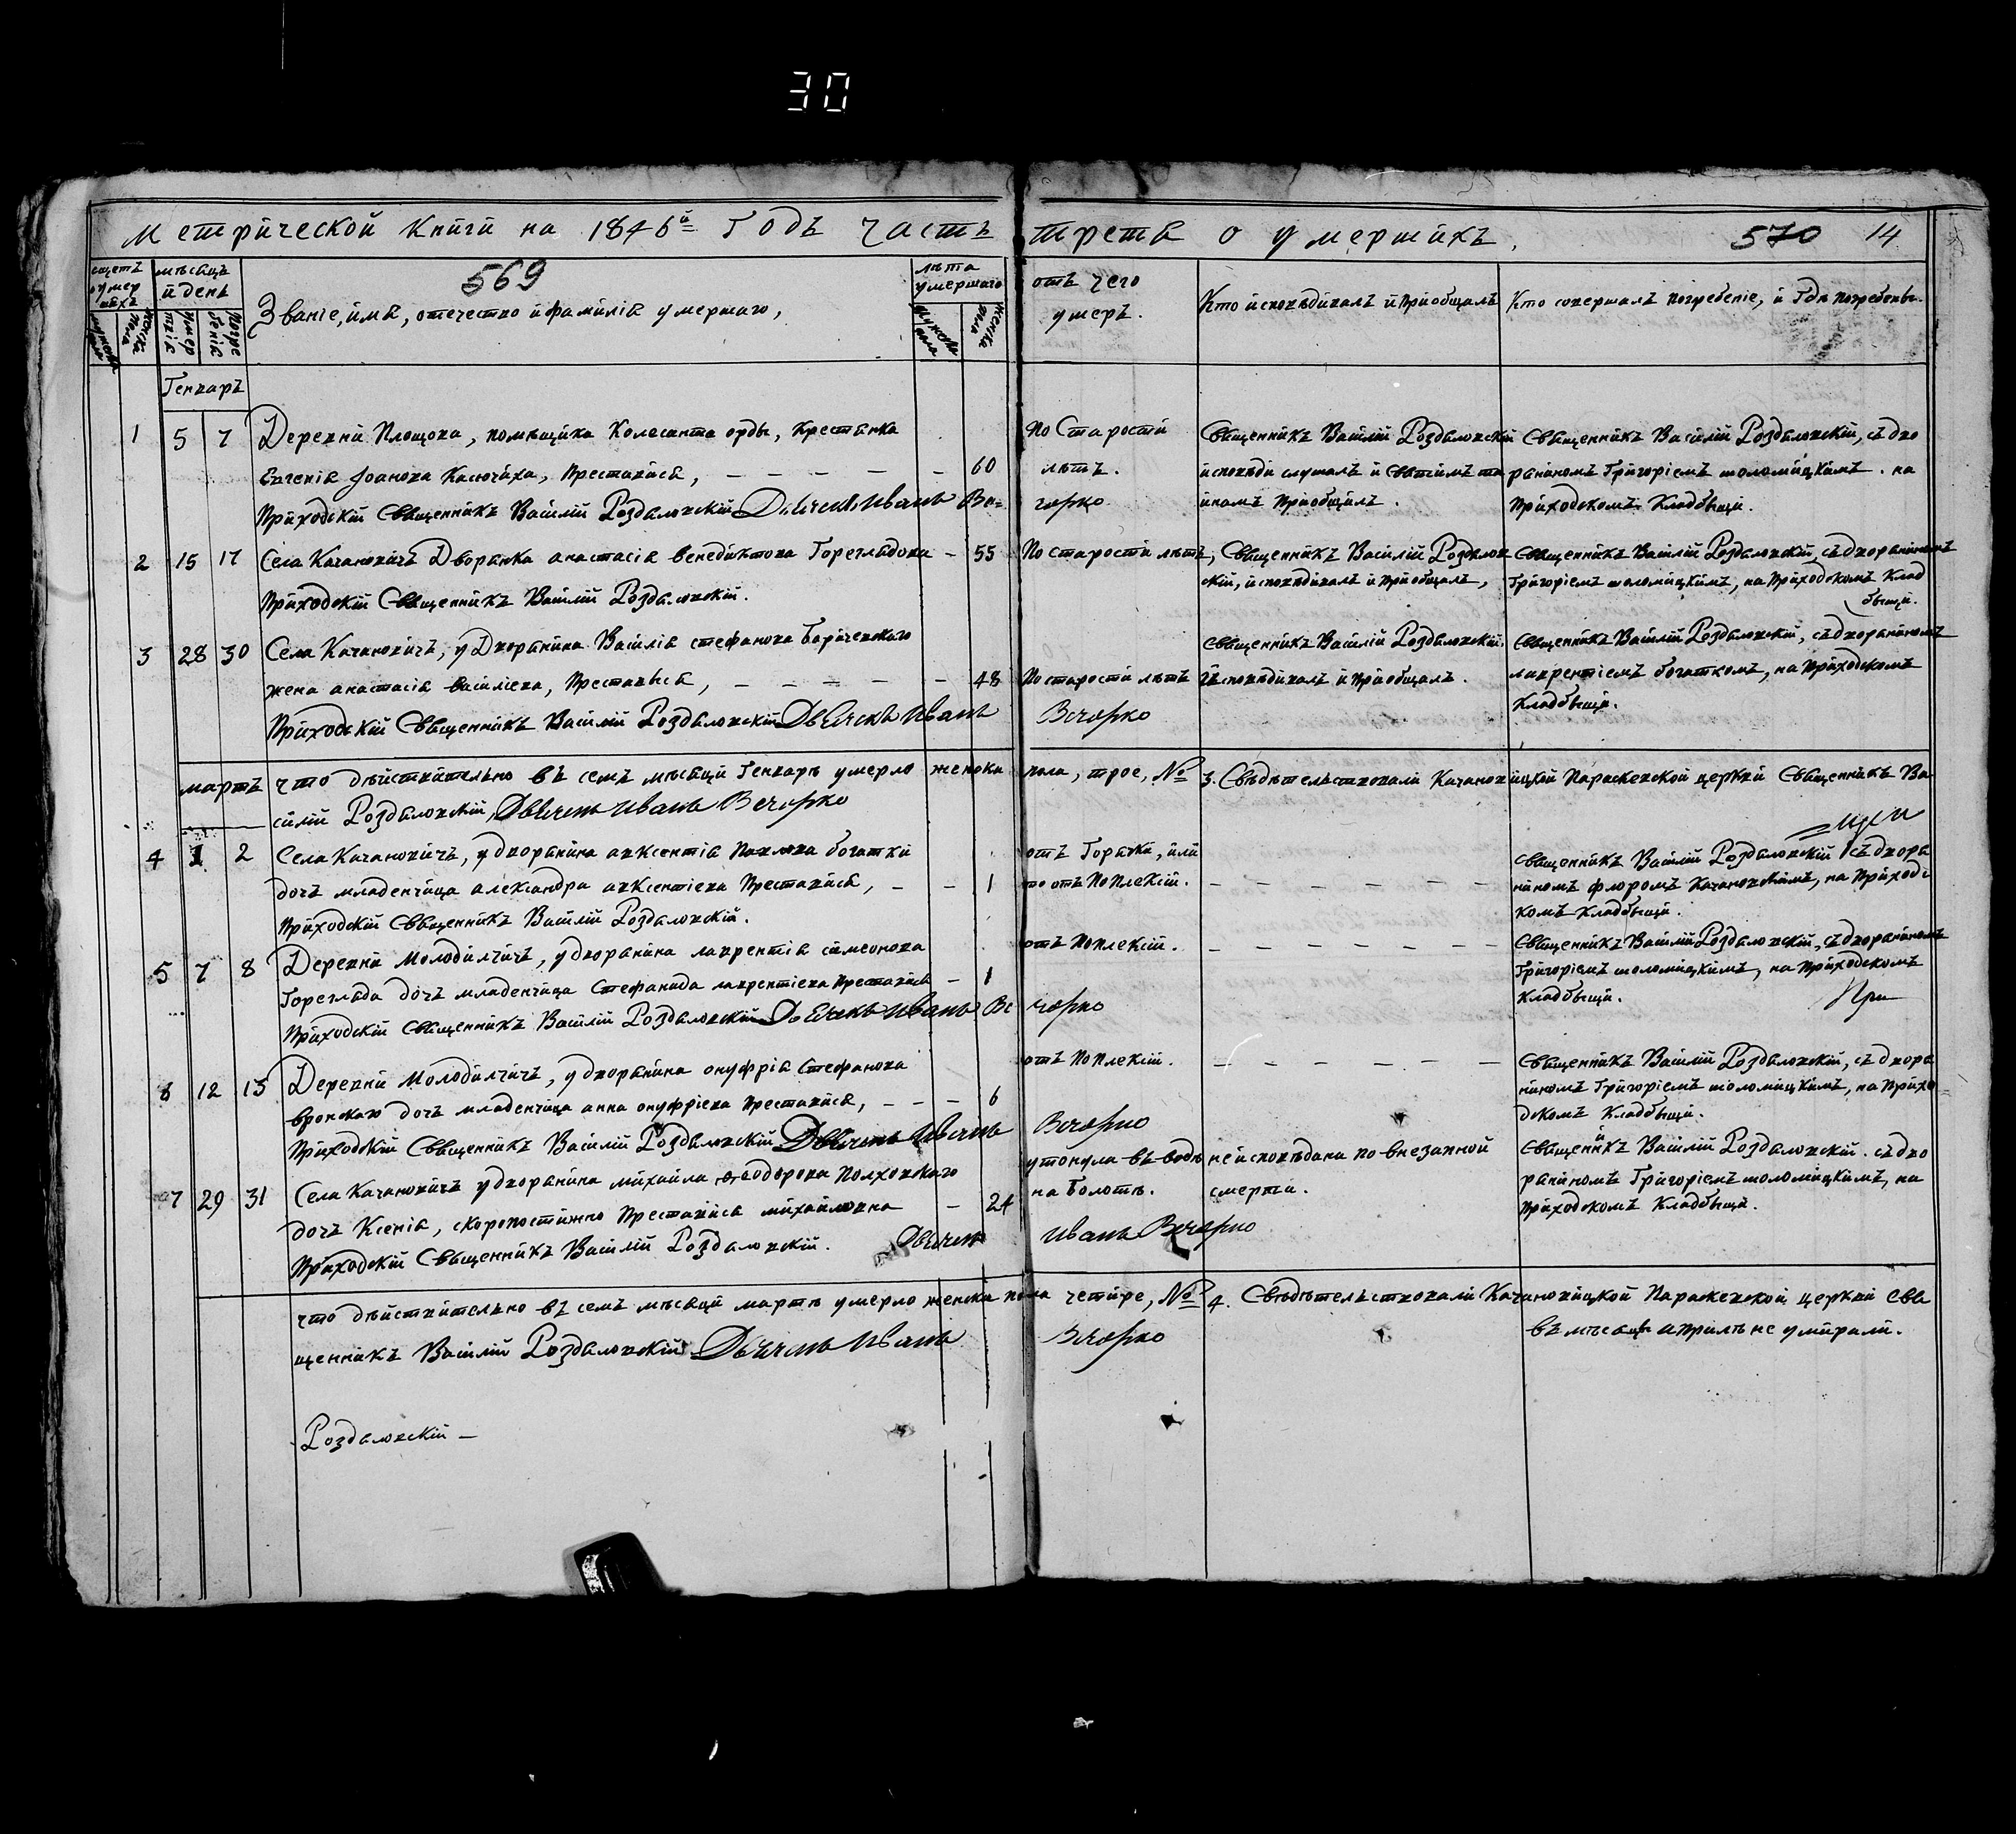 30
Метрической Книги на 1846й Годъ Часть третя о умершихъ.
569
570 14
щетъ умершихъ
мѣсяцъ и день
Званіе, имя, отечество и фамилія умершаго,
лѣта умершаго
отъ чего умеръ.
Кто исповѣдывалъ и Пріобщалъ
Кто совершалъ погребеніе, и Гдѣ погребены.
Генварь
1 5 7 Деревни Площова, помѣщика орды, Крестянка
Евгенія Іоанова Касючиха, Преставися, — — — — — 60
Приходскій Священникъ Василій Роздяловскій Дьячекъ Иванъ Вечорко
По Старости
лѣтъ.
Священникъ Василій Роздяловскій
исповѣди слушалъ и Святимъ таинамъ Пріобщилъ.
Священникъ Василій Роздяловскій, съ дворяниномъ Григоріемъ шоломицкимъ. на
Приходскомъ Кладбыщи.
2 15 17 Села Качановичъ Дворянка анастасія венедиктова Горегладова — 55
Приходскій Священникъ Василій Роздяловскій.
По старости лѣтъ,
Священникъ Василій Роздяловскій, исповѣдивалъ и пріобщалъ,
Священникъ Василій Роздяловскій, съ дворяниномъ
Григоріемъ шоломицкимъ, на Приходскомъ Кладбыщи.
3 28 30 Села Качановичъ, у Дворянина Василія стефанова Бариченскаго
жена анастасія василіева, Преставися, — — — — — 48
Приходскій Священникъ Василій Роздяловскій Дьячекъ Иванъ Вечорко
По старости лѣтъ
Священникъ Василій Роздяловскій.
Исповѣдивалъ и Пріобщалъ.
Священникъ Василій Роздяловскій, съ дворяниномъ
лаврентіемъ богаткомъ, на Приходскомъ
Кладбыщи.
что дѣйствително въ семъ мѣсяци Генварѣ умерло женска пола, трое, № 3. Свѣдѣтельствовали Качановицкой Параскевской церкви Священникъ Василій Роздяловскій, Дьячекъ Иванъ Вечорко
мартъ
4 1 2 Села Качановичъ, у дворянина авксентія Павлова богатки
дочъ младенчица александра авксентіева Преставися, — — 1
Приходскій Священникъ Василій Роздяловскій.
отъ Горячки, или
то отъ Поплексіи. — — — — — — —
священникъ Василій Роздяловскій съ дворяниномъ флоромъ Качановскимъ, на Приходскомъ Кладбыщи.
5 7 8 Деревни Молодилчичъ, у дворянина лаврентія симеонова
Горегляда дочъ младенчица Стефанида лаврентіева Преставися — 1
Приходскій Священникъ Василій Роздяловскій Дьячекъ Иванъ Вечорко
отъ Поплексіи. — — — — — — —
Священникъ Василій Роздяловскій, съ дворяниномъ
Григоріемъ шоломицкимъ, на Приходскомъ
кладбыщи.
6 12 13 Деревни Молодилчичъ, у дворянина онуфрія Стефанова
вронскаго дочъ младенчица анна онуфріева Преставися, — — — 6
Приходскій Священникъ Василій Роздяловскій Дьячекъ Иванъ Вечорко
отъ Поплексіи. — — — — — —
Священникъ Василій Роздяловскій, съ дворяниномъ Григоріемъ шоломицкимъ, на Приходскомъ Кладбыщи.
7 29 31 Села Качановичъ у дворянина михаила ѳеодорова Полховскаго
дочъ Ксенія, скоропостижно Преставися михайловна — 24
Приходскій Священникъ Василій Роздяловскій. Дьячекъ Иванъ Вечорко
утонула въ водѣ
на болотѣ.
не исповѣдана по внезапной
смерти.
Священникъ Василій Роздяловскій. съ дворяниномъ Григоріемъ шоломицкимъ, на
Приходскомъ Кладбыщи.
что дѣйствително въ семъ мѣсяци мартѣ умерло женска пола четире, № 4. Свѣдѣтельствовали Качановицкой Параскевской церкви Священникъ Василій Роздяловскій Дьячекъ Иванъ Вечорко
въ мѣсяцѣ априлѣ не умирали.
Роздяловскій —